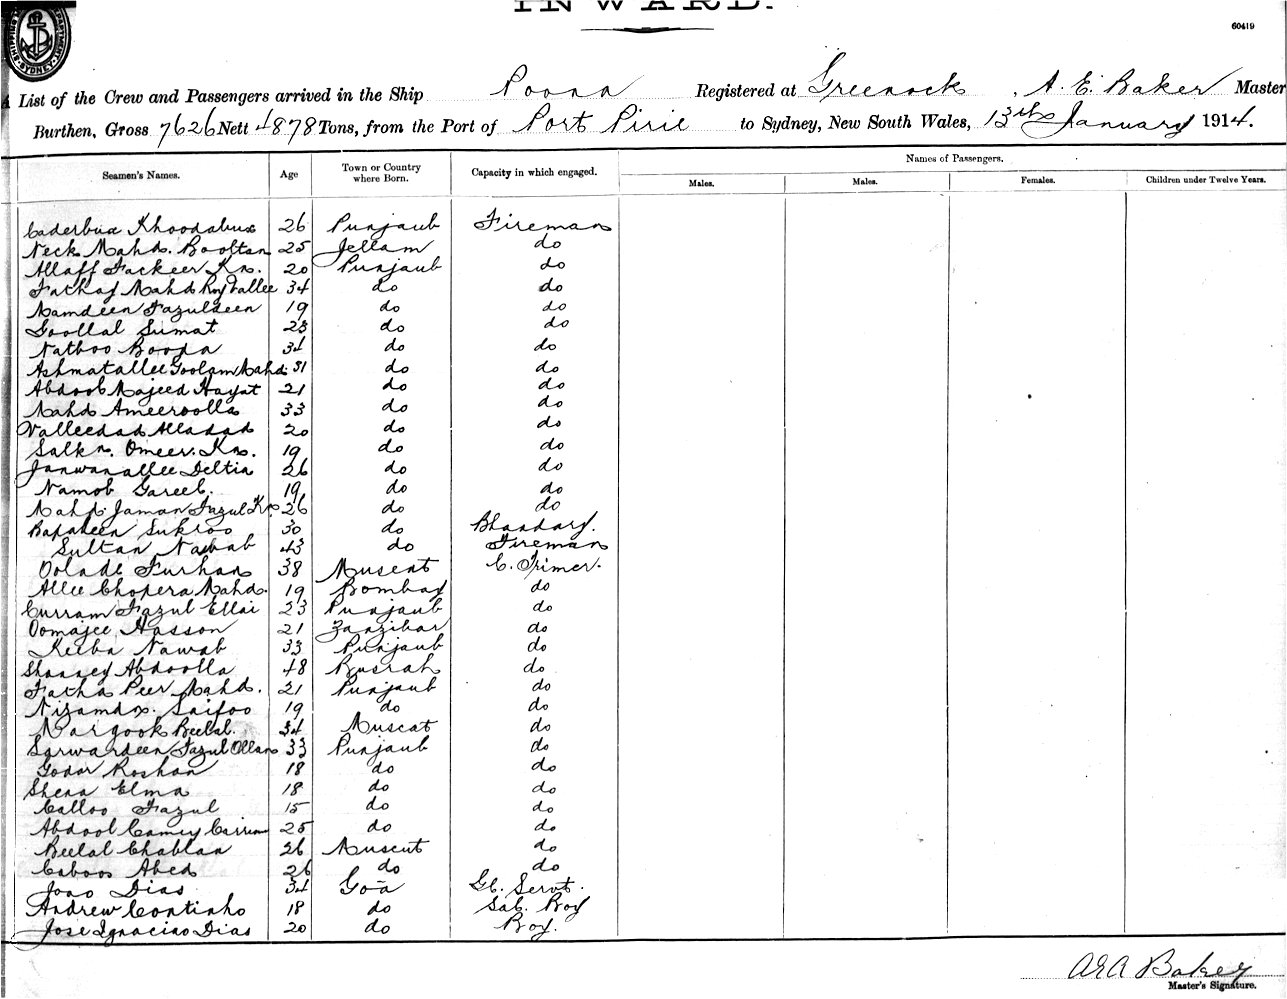 INWARD.
60419
SYDNEY
A List of the Crew and Passengers arrived in the Ship Poona Registered at Greenock, A. E. Baker Master
Burthen, Gross 7626 Nett 4878 Tons, from the Port of Port Pirie to Sydney, New South Wales, 13th January 1914.
Names of Passengers.
Seamen's Names. Age Town or Country where Born. Capacity in which engaged. Males. Males. Females. Children under Twelve Years.
Caderbux Khoodabux 26 Punjaub Fireman
Neck Mahd. Booltan 25 Jellam do
Allaff Fackeer Kn. 20 Punjaub do
Mahd 34 do do
Mamdeen Fazuldeen 19 do do
Goollal Sumat 23 do do
Nathoo Boopa 34 do do
Ashmatallee Goolam Mahd. 31 do do
Abdool Majeed Hayat 21 do do
Mahd Ameeroolla 33 do do
Valleedad Alladad 20 do do
Omeer. Kn. 19 do do
Janwanallee Deltia 26 do do
Namob Gareeb. 19 do do
Mahd. Jaman Fazul Kn 26 do do
Sukroo 30 do Bhandary.
Sultan Nawab 43 do Fireman
Oolade Furhan 38 Muscat C. Trimer.
Allee Chopera Mahd. 19 Bombay do
Curram Fazul Ellai 23 Punjaub do
Oomajee Hasson 21 Zanzibar do
Keeba Nawab 33 Punjaub do
Abdoolla 48 Busrah do
Fatha Peer Mahd. 21 Punjaub do
Saifoo 19 do do
Margook Beelal. 34 Muscat do
Sarwardeen Fazul 33 Punjaub do
Godar Roshan 18 do do
Shera Elma 18 do do
Calloo Fazul 15 do do
Abdool 25 do do
Beelal Chablan 26 Muscut do
Caboos Abed 26 do do
Joao Dias 34 Goa Gl. Servt.
Andrew Continho 18 do Sal. Boy
Jose Ignacino Dias 20 do Boy.
Baker
Master's Signature.